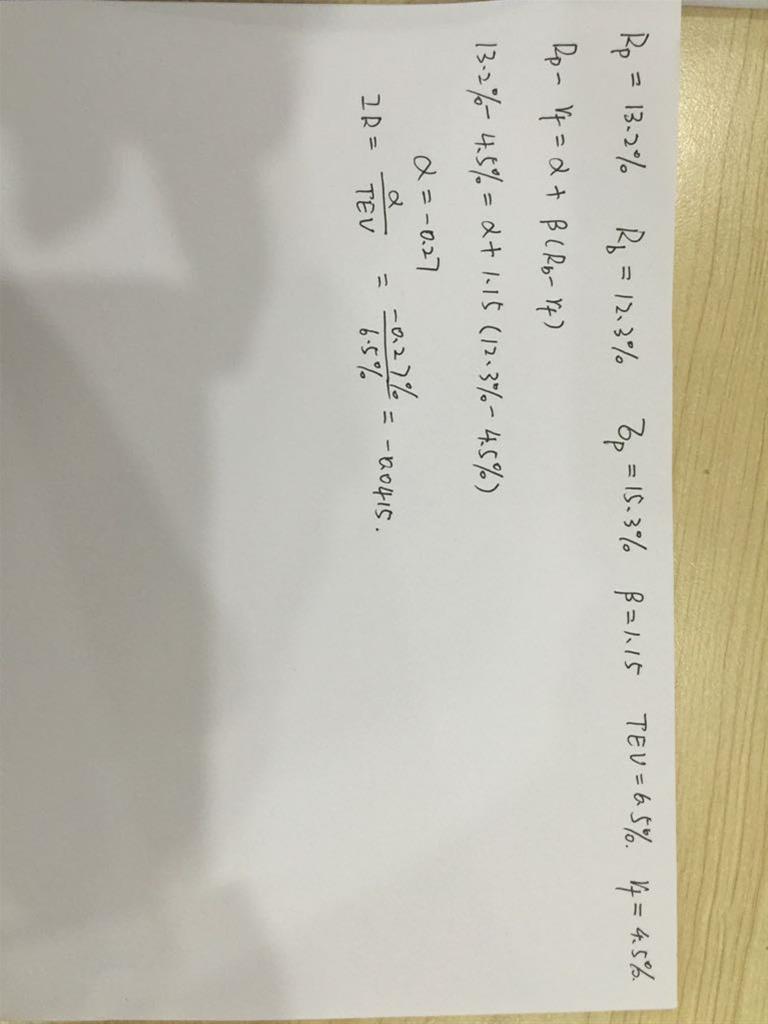 Rp = 13.2% Rb = 12.3% σp = 15.3% β = 1.15 TEV = 6.5%. rf = 4.5%.
Rp - rf = α + β(Rb - rf)
13.2% - 4.5% = α + 1.15 (12.3% - 4.5%)
α = -0.27
IR = α/TEV = -0.27%/6.5% = -0.0415.